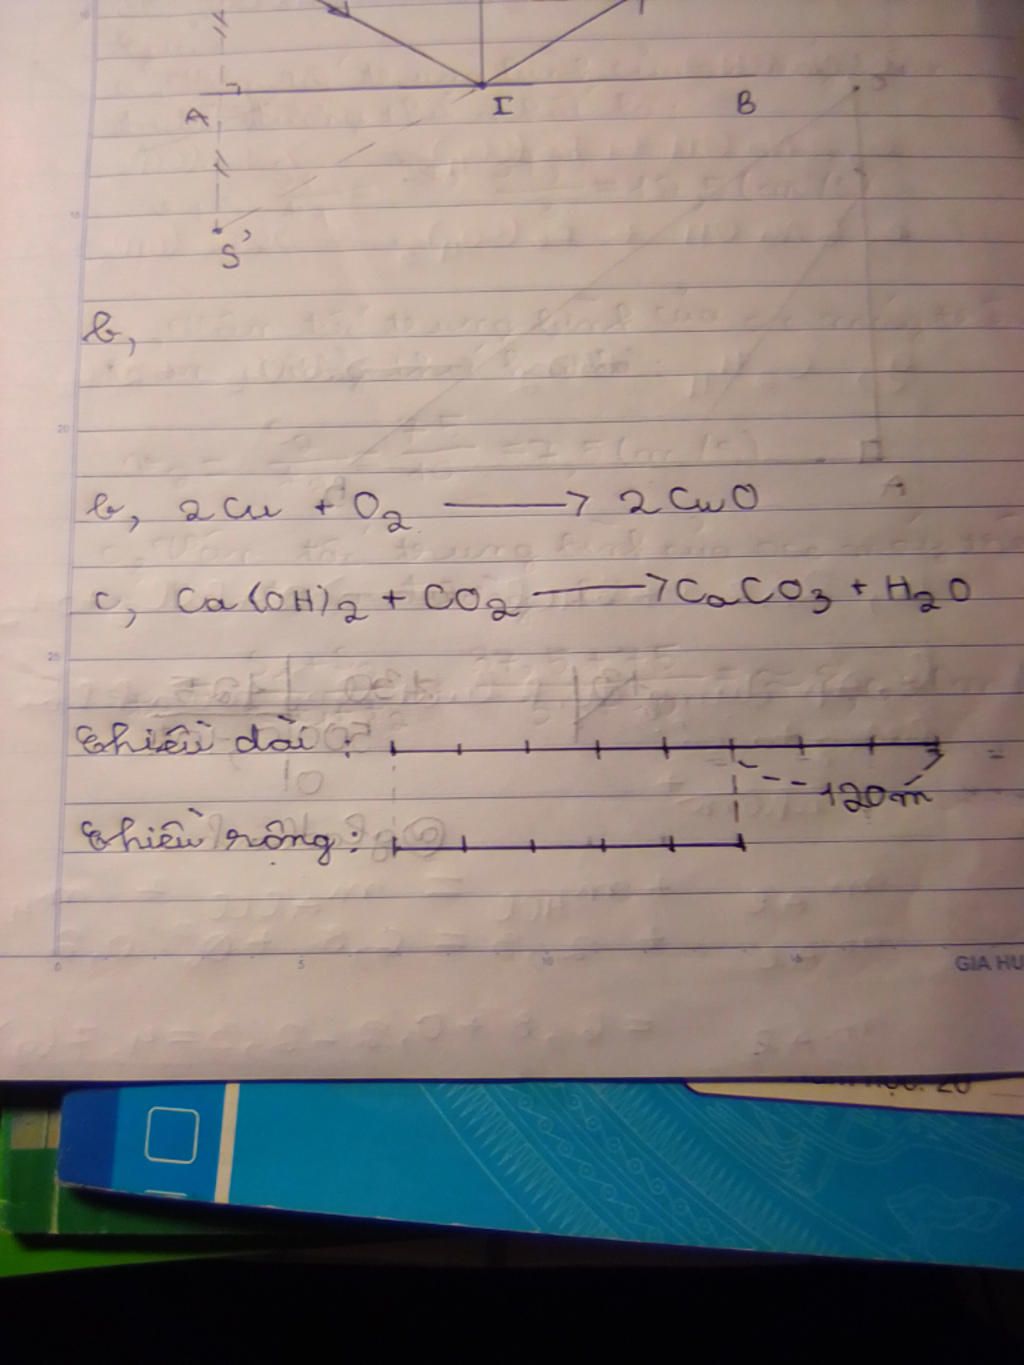 A I B
S'
b,
b, 2Cu + O2 → 2CuO
c, Ca(OH)2 + CO2 → CaCO3 + H2O
Chiều dài :
120m
Chiều rộng :
0 5 10 15 GIA HU